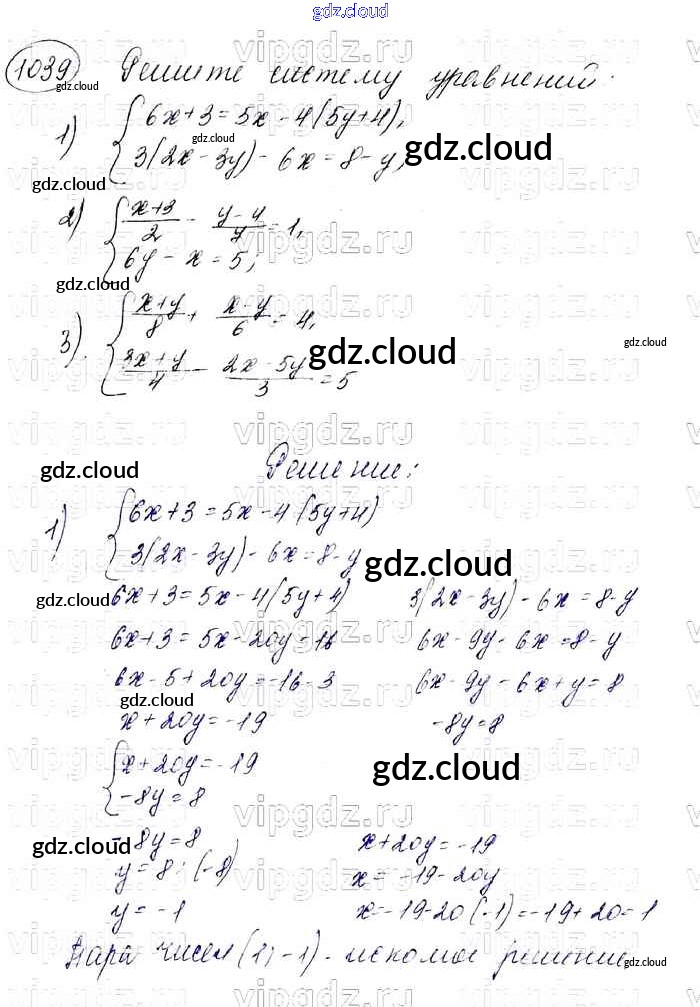 gdz.cloud
1039 Решите систему уравнений:
gdz.cloud
1) { 6x+3=5x-4(5y+4),
3(2x-3y)-6x=8-y,
gdz.cloud
gdz.cloud
gdz.cloud
2) { (x+3)/2 - (y-4)/7 = 1,
6y-x=5;
gdz.cloud
3) { (x+y)/8 + (x-y)/6 = 4,
(3x+y)/4 - (2x-5y)/3 = 5
gdz.cloud
gdz.cloud
Решение:
gdz.cloud
1) { 6x+3=5x-4(5y+4)
3(2x-3y)-6x=8-y
gdz.cloud
6x+3=5x-4(5y+4) 3(2x-3y)-6x=8-y
gdz.cloud
6x+3=5x-20y=16 6x-9y-6x=8-y
6x-5+20y=-16-3 6x-9y-6x+y=8
gdz.cloud
x+20y=-19 -8y=8
{ x+20y=-19
-8y=8
gdz.cloud
-8y=8 x+20y=-19
gdz.cloud
y=8:(-8) x=-19-20y
y=-1 x=-19-20(-1)=-19+20=1
Пара чисел (1;-1)-искомое решение
gdz.cloud
vipgdz.ru